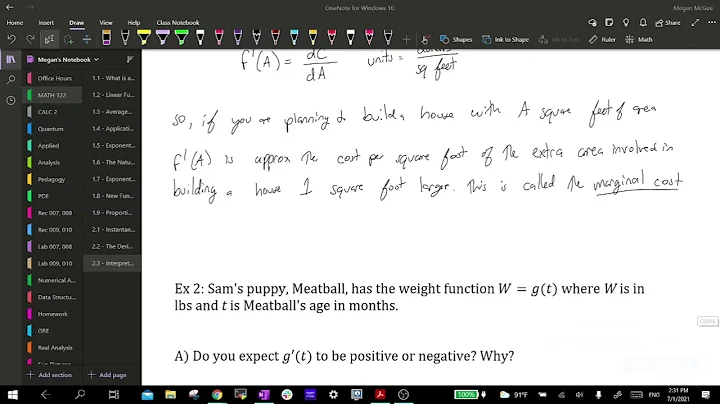 Megan McGee
OneNote for Windows 10
Home Insert Draw View Help Class Notebook
Share
Shapes Ink to Shape Ink to Text Ruler Math
Megan's Notebook
Office Hours
MATH 122
CALC 2
Quantum
Applied
Analysis
Pedagogy
PDE
Rec 007, 008
Rec 009, 010
Lab 007, 008
Lab 009, 010
Numerical A...
Data Structu...
Homework
GRE
Real Analysis
Add section
1.1 - What is a...
1.2 - Linear Fu...
1.3 - Average...
1.4 - Applicati...
1.5 - Exponent...
1.6 - The Natu...
1.7 - Exponent...
1.8 - New Func...
1.9 - Proporti...
2.1 - Instantan...
2.2 - The Deri...
2.3 - Interpret...
Add page
f'(A) = dC/dA units = dollars/sq feet
so, if you are planning to build a house with A square feet of area
f'(A) is approx the cost per square foot of the extra area involved in
building a house 1 square foot larger. This is called the marginal cost
Ex 2: Sam's puppy, Meatball, has the weight function W = g(t) where W is in
lbs and t is Meatball's age in months.
A) Do you expect g'(t) to be positive or negative? Why?
CLOSE
100%
91°F
ENG
2:31 PM
7/1/2021